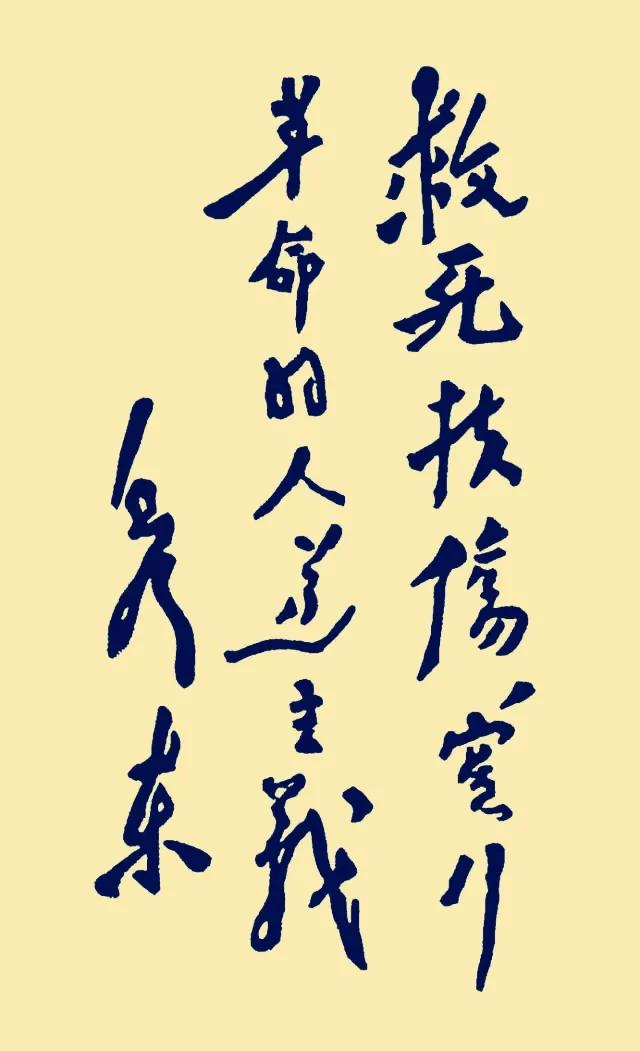 救死扶傷實行
革命的人道主義
毛泽东